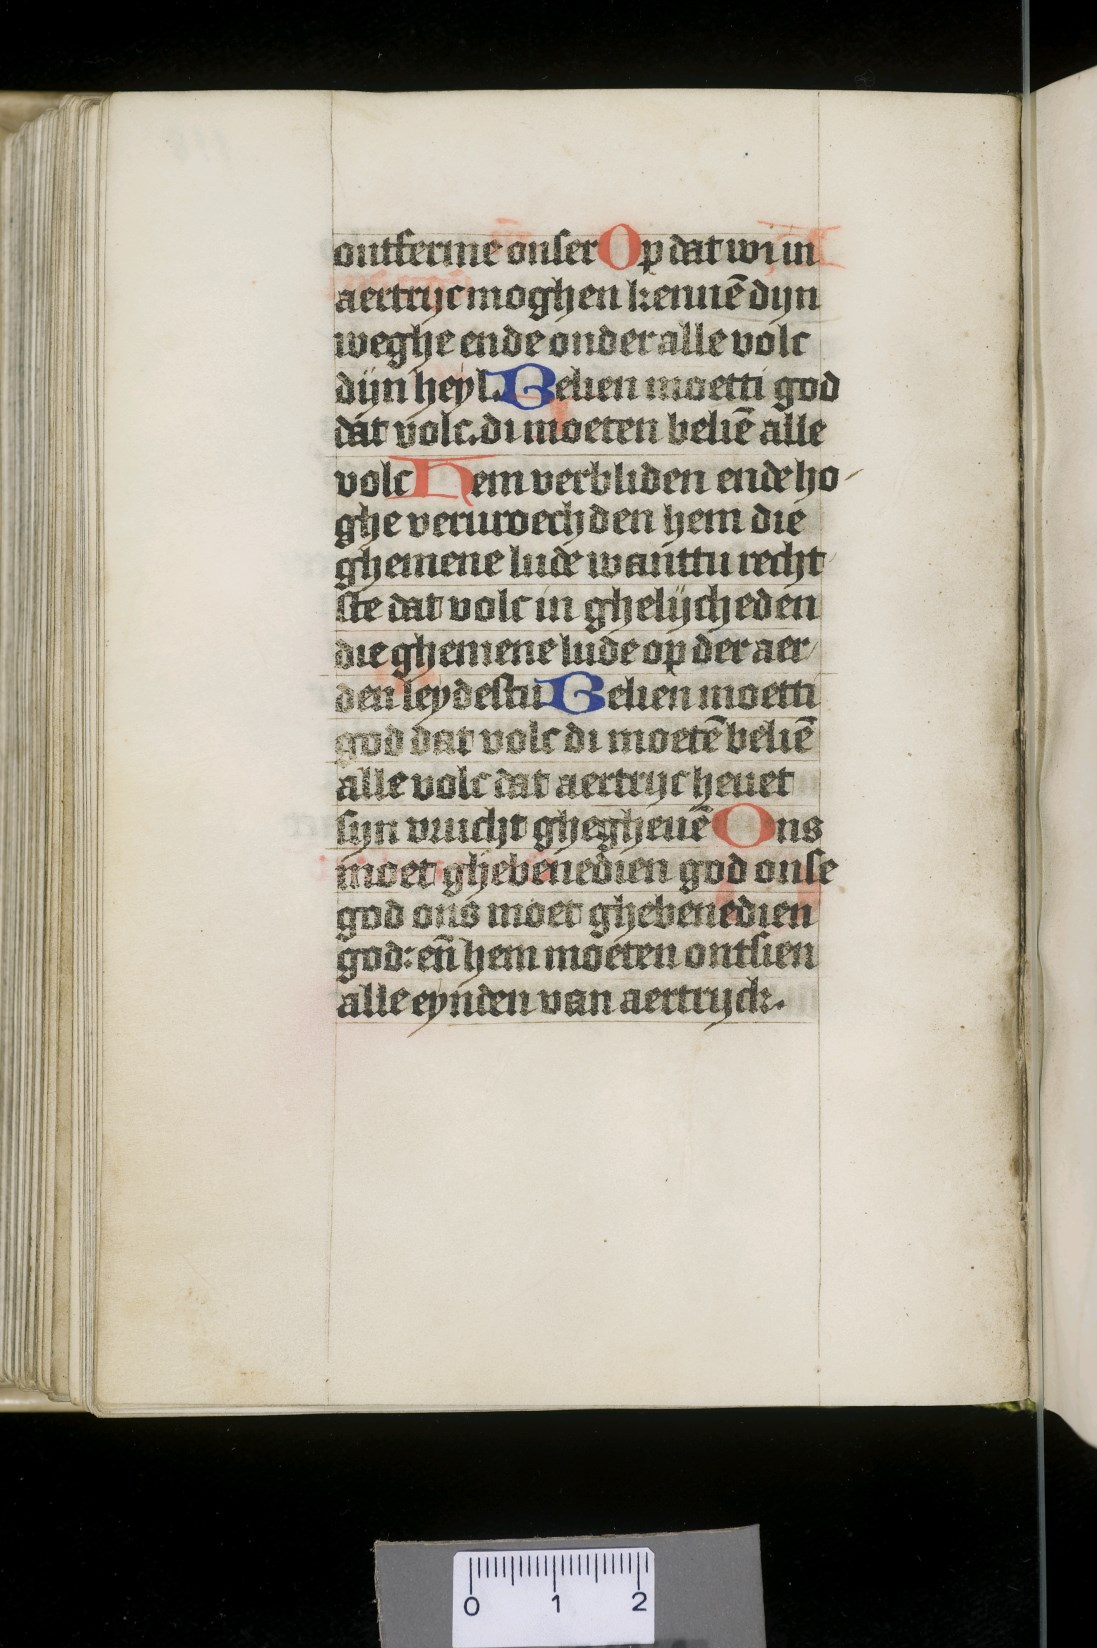 ontferme onser Op dat wi in
aertrijc moghen kennē dijn
weghe ende onder alle volc
dijn heyl. Belien moetti god
dat volc. di moeten beliē alle
volc Hem verbliden ende ho
ghe veruroechden hem die
ghemene lude wanttu recht
ste dat volc in ghelijcheden
die ghemene lude op der aer
den leydestu Belien moetti
god dat volc di moetē beliē
alle volc dat aertrijc heuet
sijn vrucht ghegheuē Ons
moet ghebenedien god onse
god ons moet ghebenedien
god: eñ hem moeten ontsien
alle eynden van aertrijck.
0 1 2